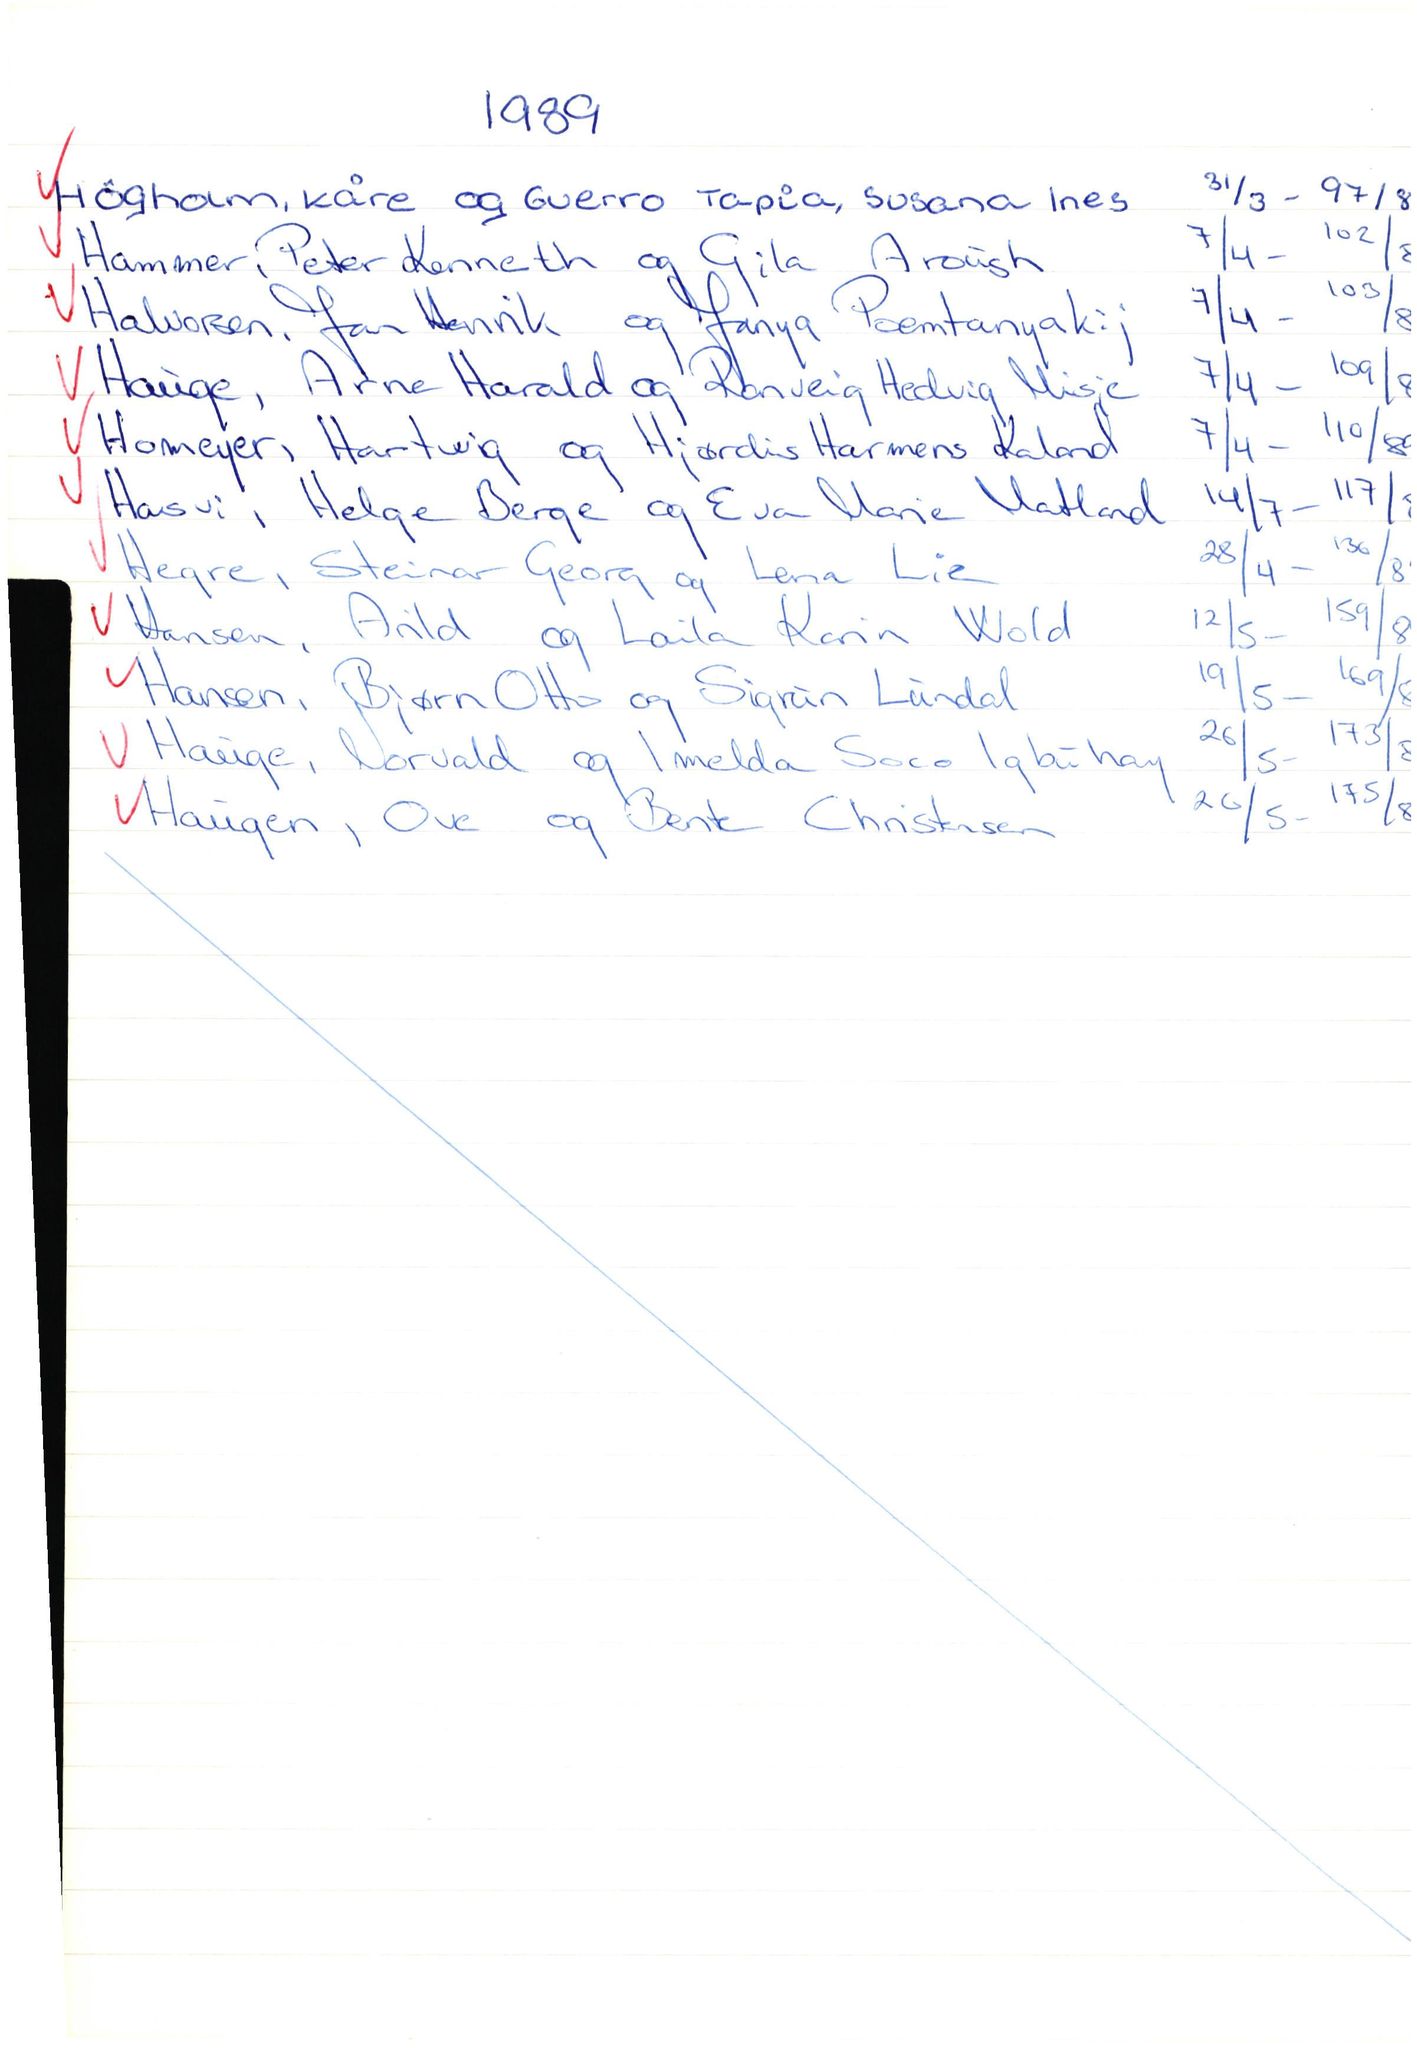 1989
Högholm, Kåre og Guerro Tapia, Susana Ines 31/3 - 97/8
Hammer, Peter Kenneth og Gila Aroush 7/4 - 102/8
Halvorsen, Jan Henrik og Janya Poemtanyakij 7/4 - 103/8
Hauge, Arne Harald og Ranveig Hedvig Misje 7/4 - 109/8
Homeyer, Hartwig og Hjørdis Harmens Kaland 7/4 - 110/89
Hasvi, Helge Berge og Eva Marie Matland 14/7 - 117/8
Hegre, Steinar Georg og Lena Lie 28/4 - 136/8
Hansen, Arild og Laila Karin Wold 12/5 - 159/8
Hansen, Bjørn Otto og Sigrun Lundal 19/5 - 169/8
Hauge, Norvald og Imelda Soco Igbuhay 26/5 - 173/8
Haugen, Ove og Bente Christensen 26/5 - 175/8